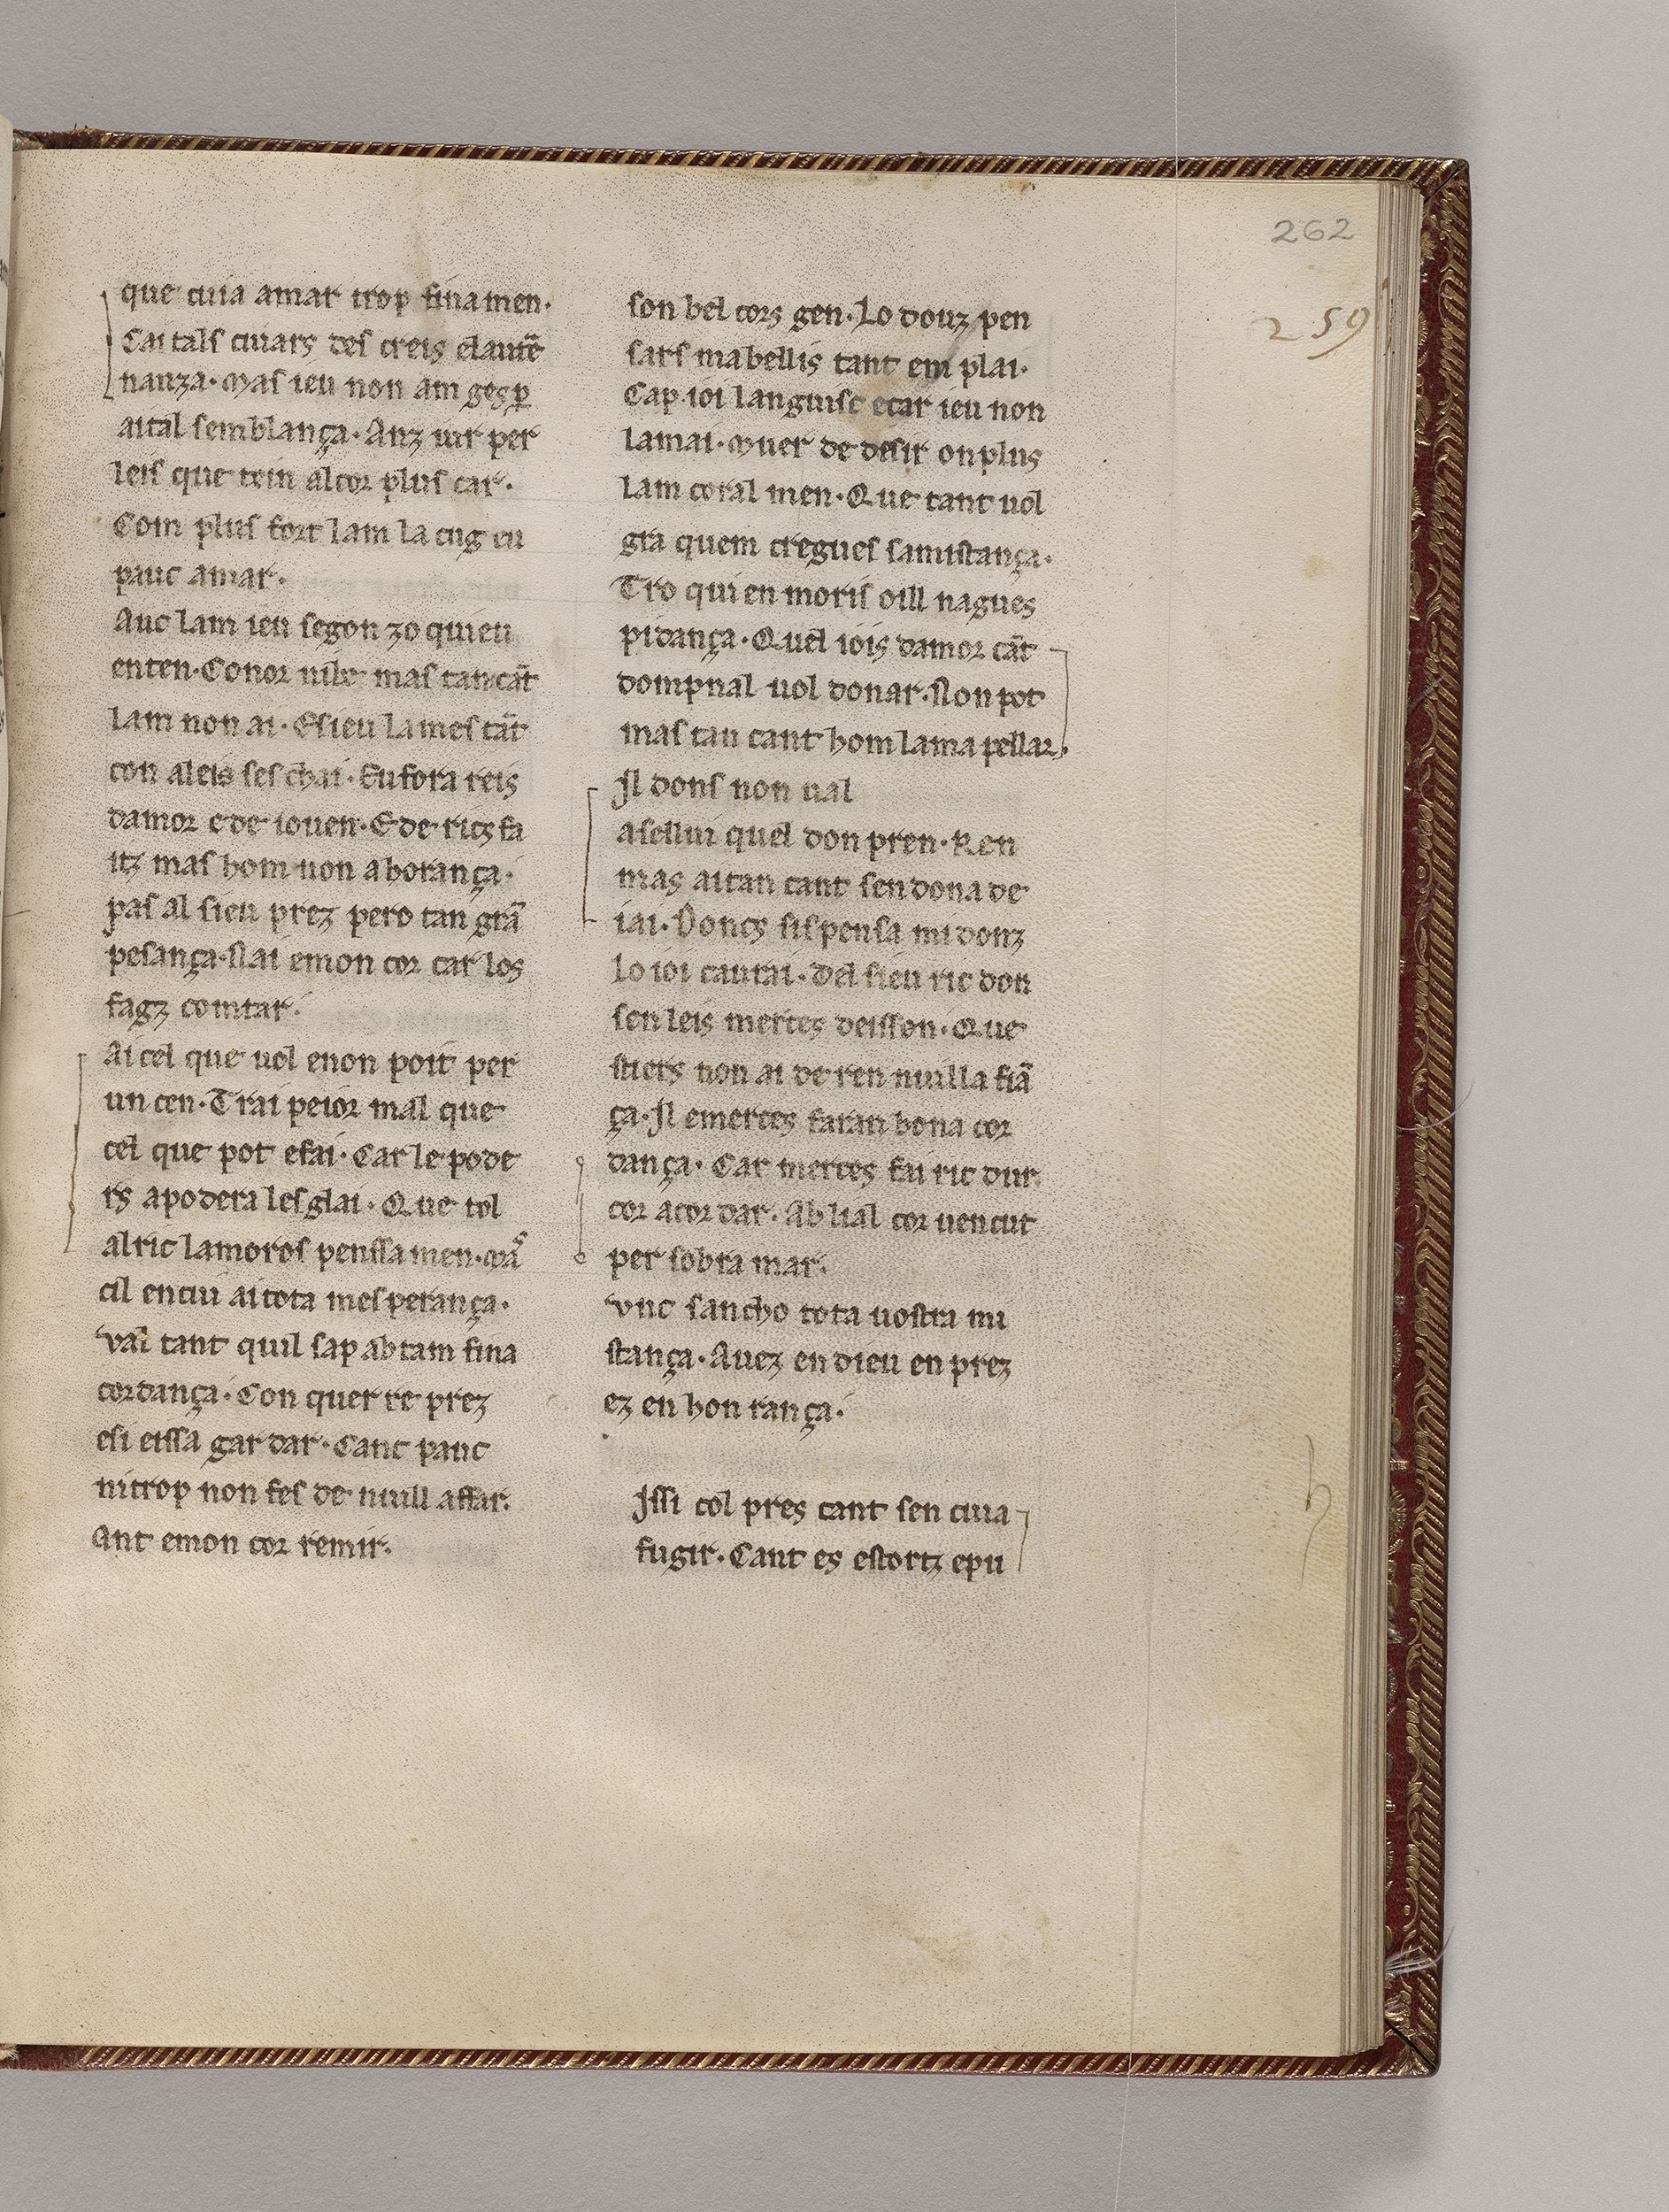 262
259
que cuia amar trop finamen·
Cai tals cuiars des creis elauue̅
nanza· Mas ieu non am ges p̲
aital semblança· Anz uir per
leis que tein alcor plus car·
Com plus fort lam la cug eu
pauc amar·
Auc lam ieu segon zo quieu
enten· Conor nile mas tan ca̅t
lam non ai· Esieu lames ta̅t
con aleis ses chai· Eu fora reis
damor e de iouen· E de rics fa
itz mas hom non abotança·
pas al sieu prez pero tan gra̅
pesança· Nai emon cor car los
fagz comtar·
Ai cel que uol enon poit per
un cen· Trai peior mal que
cel que pot efai· Car le pode
rs apodera lesglai· Que tol
alric lamoros penssamen· ma͛
cil encui ai tota mesperança·
Val tant quil sap ab tam fina
cordança· Con querre prez
esi eissa gardar· Canc pauc
nitrop non fes de nuill affar·
Ant emon cor remir·
son bel cors gen· Lo douz pen
sars mabellis tant em plai·
Cap ioi languisc ecar ieu non
lamai· Muer de desir on plus
lam coral men· Que tant uol
gra quem cregues samistança·
Tro quien moris oill nagues
pidança· Quel iois damor ca̅t
dompnal uol donar· Non pot
mas tan cant hom lama pellar·
Il dons non ual
asellui quel don pren· Ren
mas aitan cant sen dona de
iai· Doncs sis pensa mi donz
lo ioi caurai· Del sieu ric don
sen leis merces deisson· Que
stiers non ai de ren nuilla fia̅
ça· Il emerces faran bona cor
dança· Car merces fai ric dur
cor acordar· Ab lial cor uencut
per sobra mar·
Vnc sancho tota uostra mi
stança· Auez en dieu en prez
ez en honrança·
Issi col pres cant sen cuia
fugir· Cant es estortz epu
h